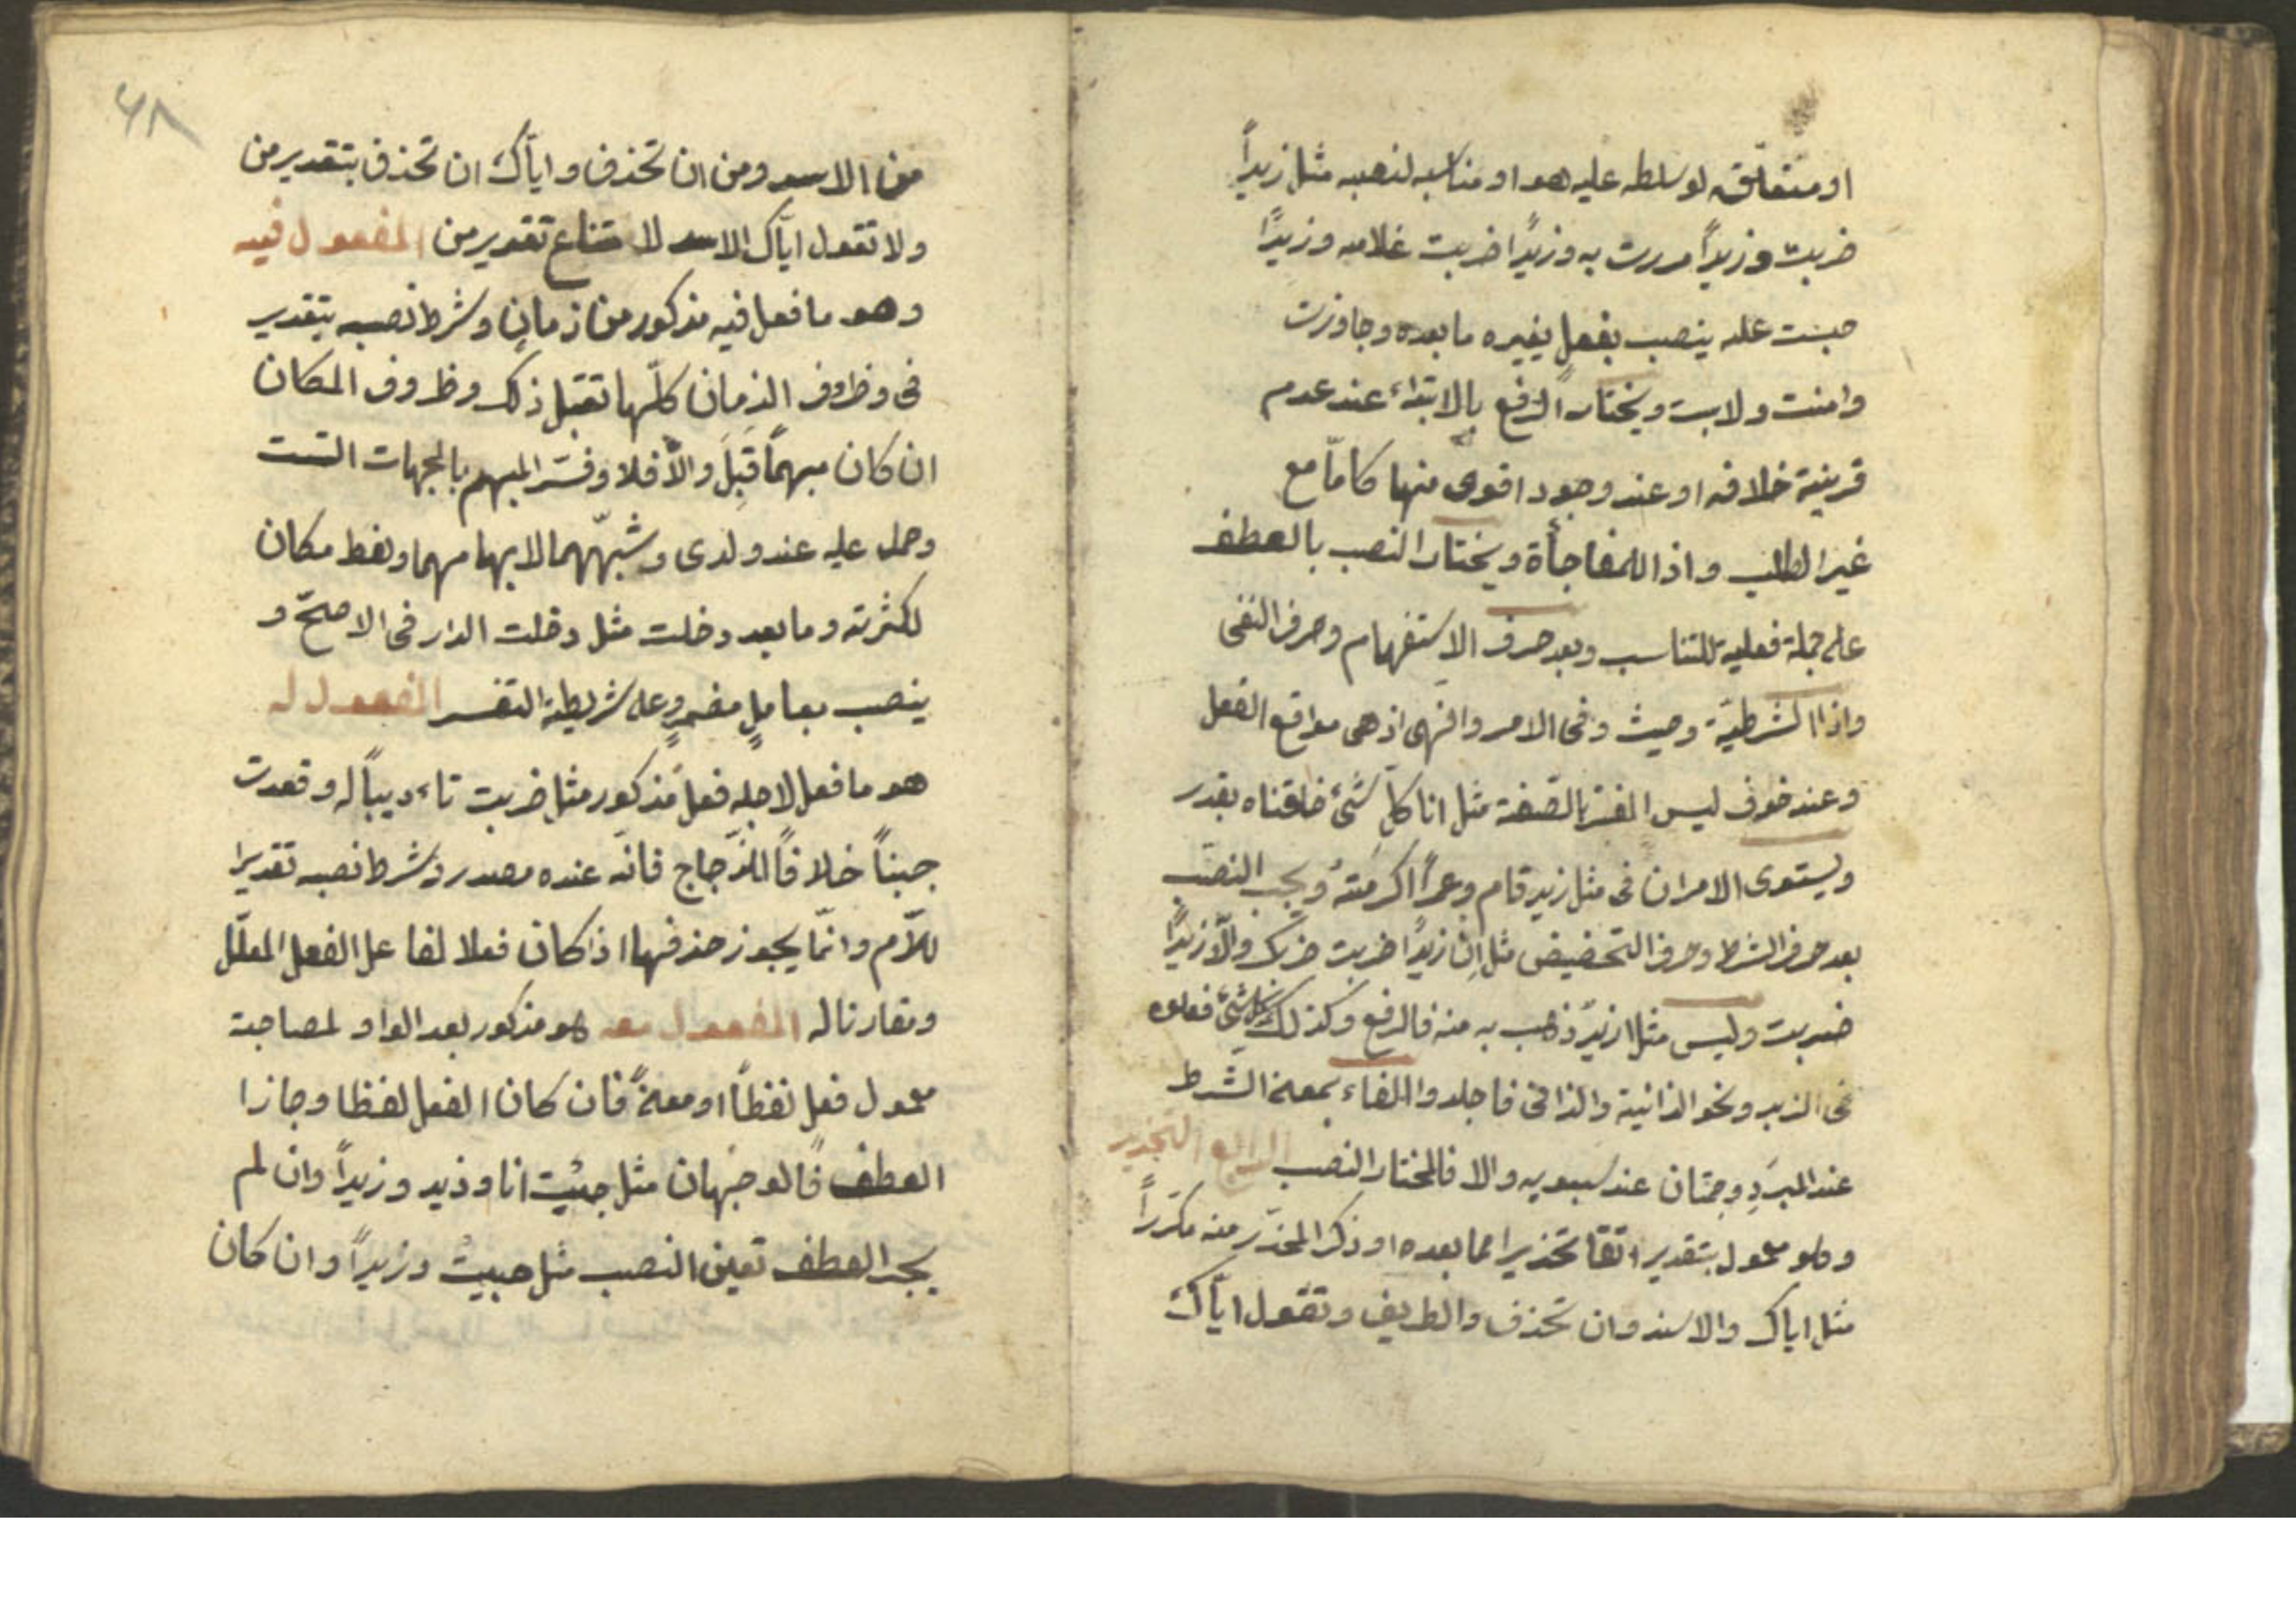 او متعلّق لو سلط عليه هو او مناسبه لنصبه مثل زيداً
ضربت وزيداً مررت به وزيداً ضربت غلامه وزيداً
حبست عليه ينصب بفعل يفسره ما بعده وجاوزت
وامنت ولابست ويختار الرفع بالابتداء عند عدم
قرينة خلافه او عند وجود اقوى منها كامّا مع
غير الطلب واذا للمفاجأة ويختار النصب بالعطف
على جملة فعلية للتناسب وبعد حرف الاستفهام وحرف النفى
واذا الشرطيّة وحيث وفى الامر والنهى اذ هى مواقع الفعل
وعند خوف ليس المفسّر بالصّفة مثل انا كلّ شئ خلقناه بقدر
ويستوى الامران فى مثل زيد قام وعمراً اكرمته ويجب النصب
بعد حرف الشرط وحرف التحضيض مثل اِن زيداً ضربت ضربك والّا زيداً
ضربت وليس مثل ازيدٌ ذهب به منه فالرفع وكذلك كل شئ فعلوه
فى الزبر ونحو الزانية والزانى فاجلدوا الفاء بمعنى الشّرط
عند المبرّدِ وجملتان عند سيبويه والا فالمختار النصب الرابع التحذير
وهو معمول بتقدير اتق تحذيرا مما بعده او ذكر المحذّر منه مكرّراً
مثل اياك والاسد وان تحذف والطريق وتقول ايّاك
٤٨
من الاسد ومن ان تحذف وايّاك ان تحذف بتقدير من
ولا تقول ايّاك الاسد لا متناع تقدير من المفعول فيه
وهو ما فعل فيه مذكور من زمان وشرط نصبه بتقدير
فى وظروف الزمان كلّها تقبل ذلك وظروف المكان
ان كان مبهماً قَبِلَ والاّ فلا وفسّر المبهم بالجهات الستت
وحمل عليه عند ولدى وشبّههما لابهامهما ولفظ مكان
لكثرته وما بعد دخلت مثل دخلت الدار فى الاصحّ و
ينصب بعاملٍ مضمرٍ وعلى شريطة التفسير المفعول له
هو ما فعل لاجله فعل مذكور مثل ضربت تاءديباً له وقعدت
جبناً خلافاً للزّجاج فانّه عنده مصدر وشرط نصبه تقدير
للاّم وانّما يجوز حذفها اذا كان فعلا لفاعل الفعل المعلّل
ومقارنا له المفعول معه هو مذكور بعد الواو لمصاحبة
معمول فعل لفظاً او معنىً فان كان الفعل لفظا وجاز ا
العطف فالوجهان مثل جئت انا وزيد وزيداً وان لم
يجز العطف تعيّن النصب مثل جئت وزيداً وان كان